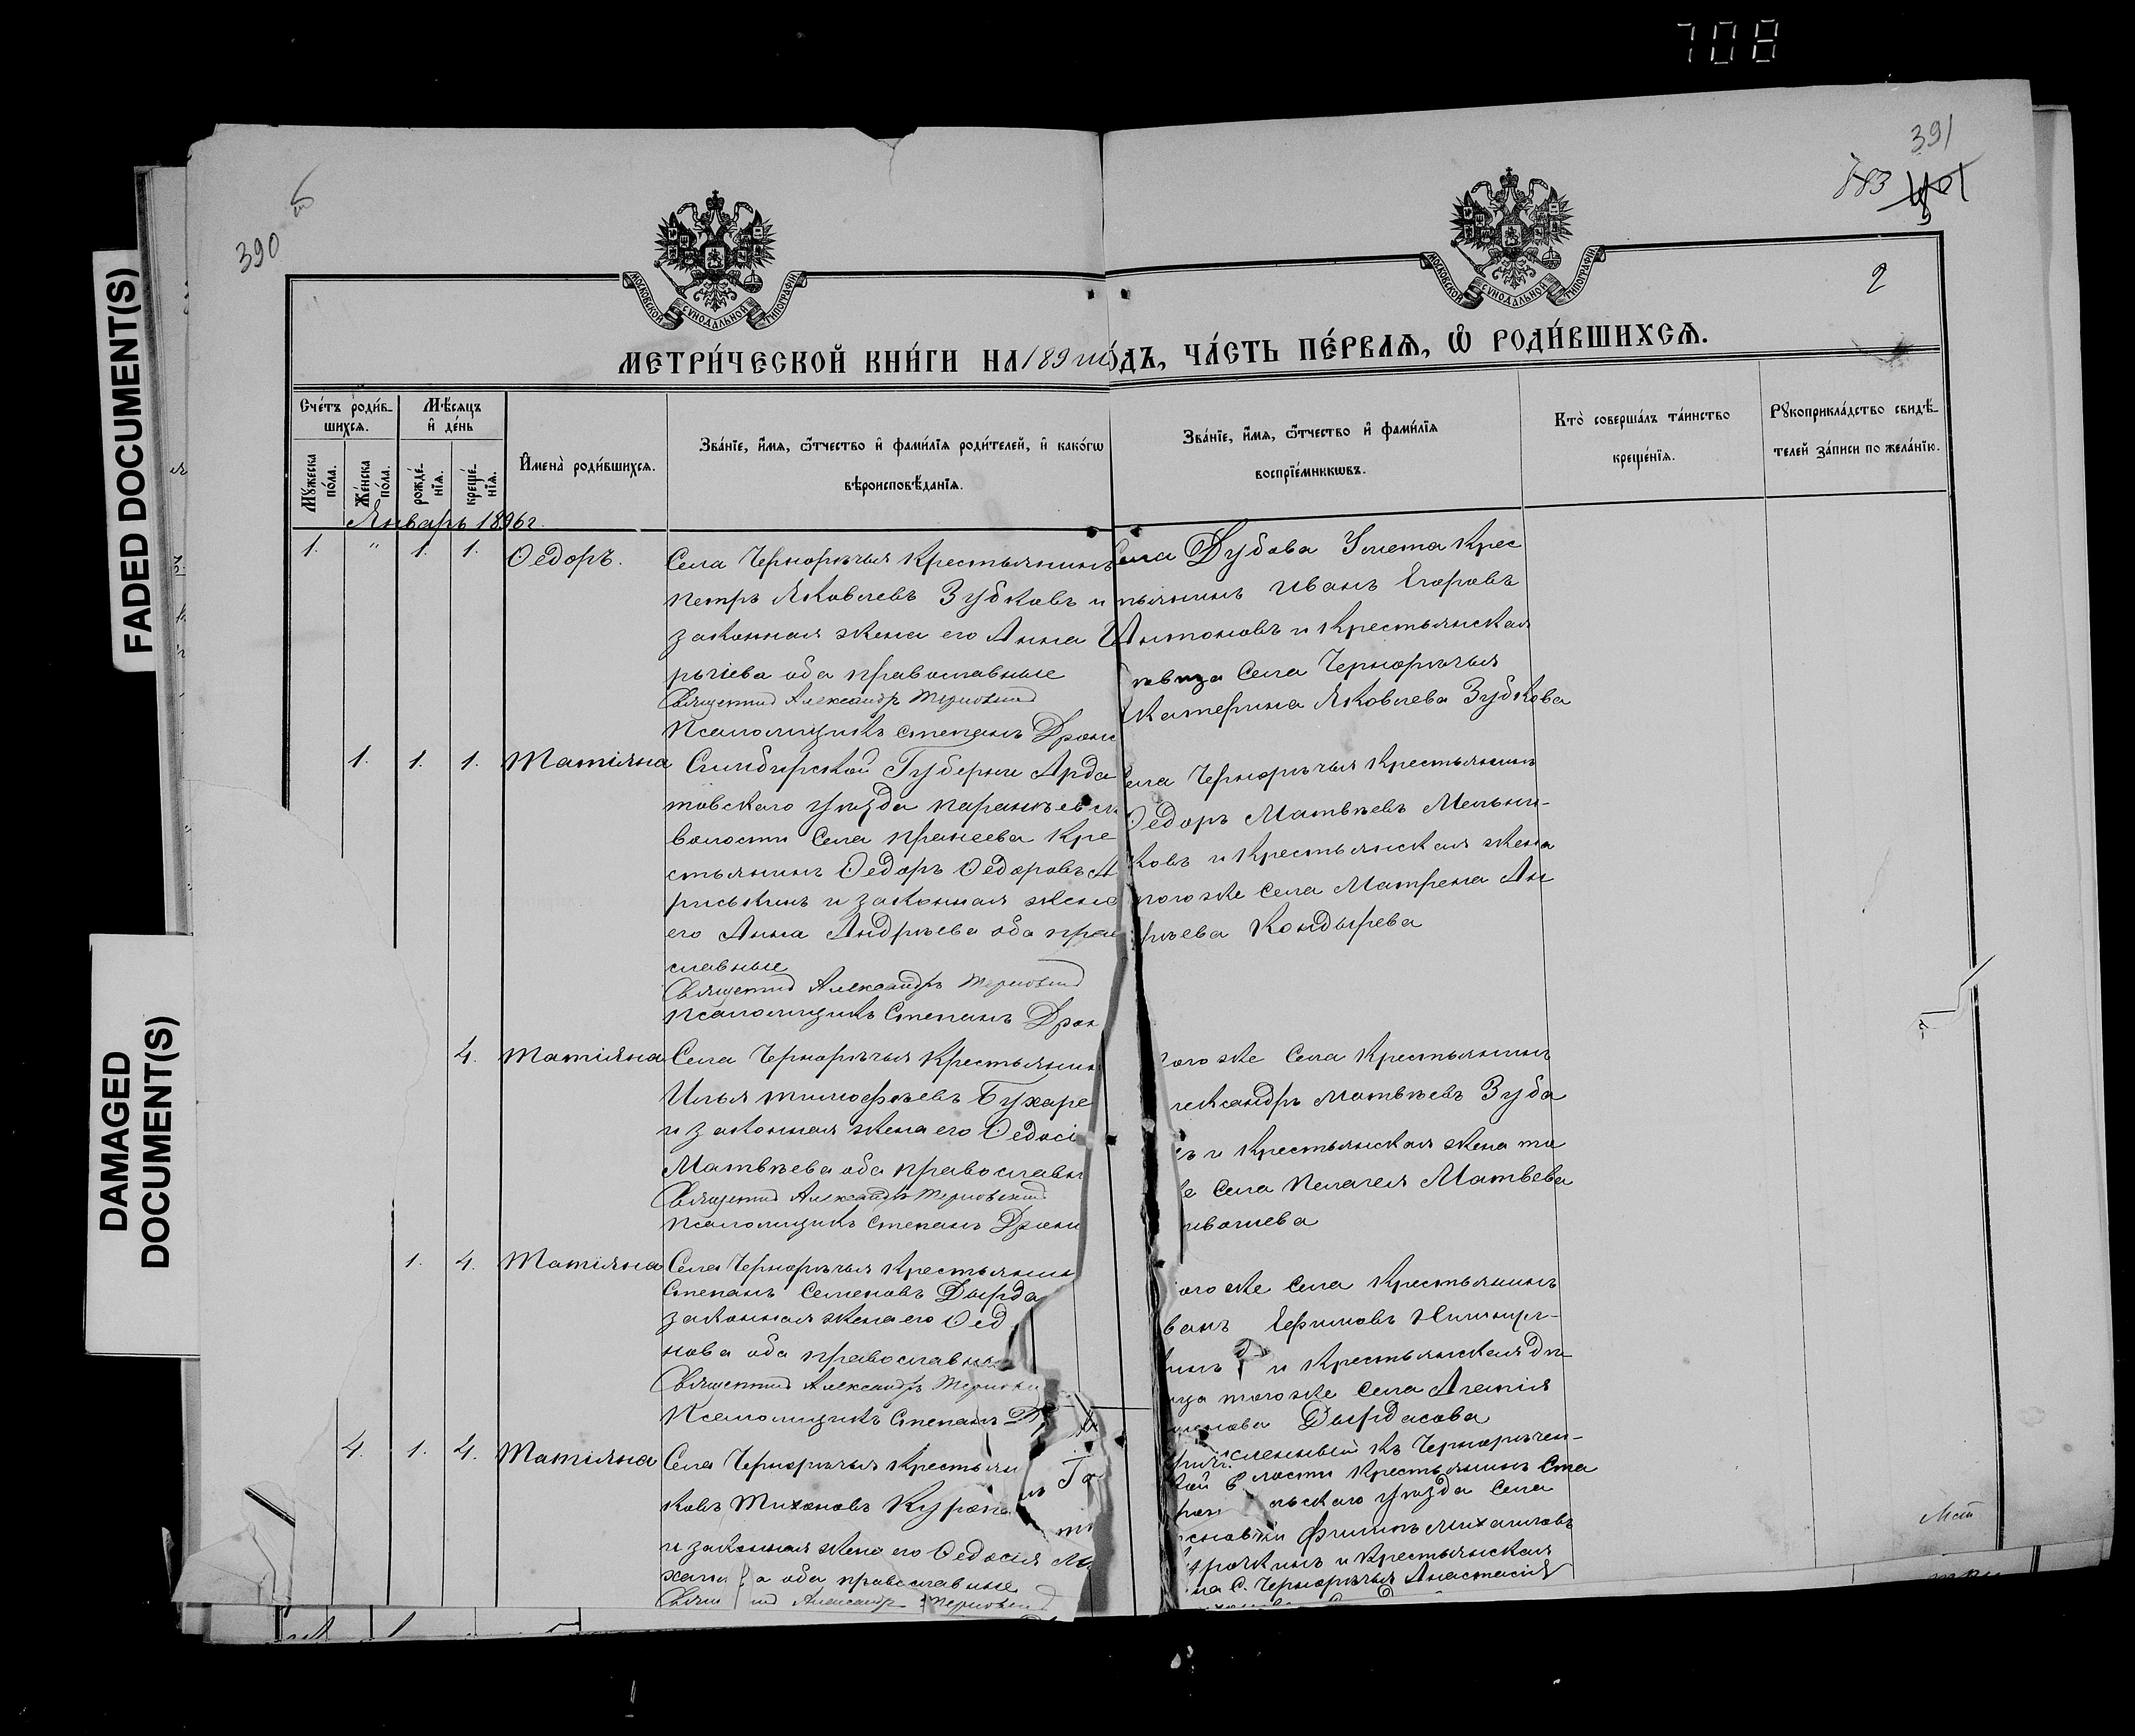 708
FADED DOCUMENT(S)
DAMAGED
DOCUMENT(S)
390
391
883
2
МОСКОВСКОЙ СУНОДАЛЬНОЙ ТИПОГРАФІИ
МОСКОВСКОЙ СУНОДАЛЬНОЙ ТИПОГРАФІИ
МЕТРИ́ЧЕСКОЙ КНИ́ГИ НА 189 ОДЪ, ЧА́СТЬ ПЕ́РВАѦ, Ѡ РОДИ́ВШИХСѦ.
Сче́тъ роди́в-
шихся.
Мѣ́сяцъ
и де́нь
Мꙋжеска
по́ла.
Же́нска
по́ла.
рожде́-
нїя.
креще́-
нїя.
Имена̀ роди́вшихся.
Зва́нїе, и́мя, ѻ҆́тчество и фами́лїя роди́телей, и како́гѡ
вѣроисповѣ́данїя.
Зва́нїе, и́мя, ѻ҆́тчество и фами́лїя
воспрїе́мникѡвъ.
Кто̀ соверша́лъ та́инство
креще́нїя.
Рꙋкоприкла́дство свидѣ́-
телей за́писи по жела́нїю.
Январь 1896 г.
1. " 1. 1. Ѳедоръ.
Села Чернорѣчья Крестьянинъ
Петръ Яковлевъ Зубковъ и
законная жена его Анна
рьиева оба православные
Священник Александръ Терновский
Псаломщикъ Степанъ Дрон
Села Дубова Умета Крес
тьянинъ Иванъ Егоровъ
Антоновъ и крестьянская
девица Села Чернорѣчья
Екатерина Яковлева Зубкова
1. 1. 1. Татіяна
Симбирской Губерни Арда
товскаго уѣзда Паранѣевск
волости Села Пранеева Кре-
стьянинъ Ѳедоръ Ѳедоровъ А
риськинъ и законная жена
его Анна Андрѣева оба прав
славные
Священник Александръ Терновский
Псаломщикъ Степанъ Дрон
Села Чернорѣчья крестьянинъ
Ѳедоръ Матвѣевъ Мельни-
ковъ и крестьянская жена
того же Села Матрена Ан
дрѣева Кондырева
4. Татіяна
Села Чернорѣчья Крестьянин
Илья Тимофѣевъ Бухаре
и законная жена его Ѳедосі
Матвѣева оба православн
Священник Александръ Терновский
Псаломщикъ Степанъ Дрон
того же Села Крестьянинъ
лександръ Матвѣевъ Зуб
въ и крестьянская жена то
е Села Пелагея Матвѣева
1. 4. Татіяна
Села Чернорѣчья Крестьянин
Степанъ Семеновъ Дырда
законная жена его Ѳед
нова оба православны
Священник Александръ Терновски
Псаломщикъ Степанъ
ого же Села Крестьянинъ
ванъ Ефимовъ
инъ и Крестьянская дѣ-
ица того же Села Агафія
Дырдасова
4. 1. 4. Татіяна
Села Чернорѣчья Крестьян
ковъ Тихоновъ Курап
и законная жена его Ѳедосія Ми
хаил а оба православные
Свящ ник Александр Терновский
численный къ Чернорѣчен-
кой в лости крестьянинъ Ста
льскаго уѣзда Села
сновки Филипъ Михаиловъ
и крестьянская
на С. Чернорѣчья Анастасія